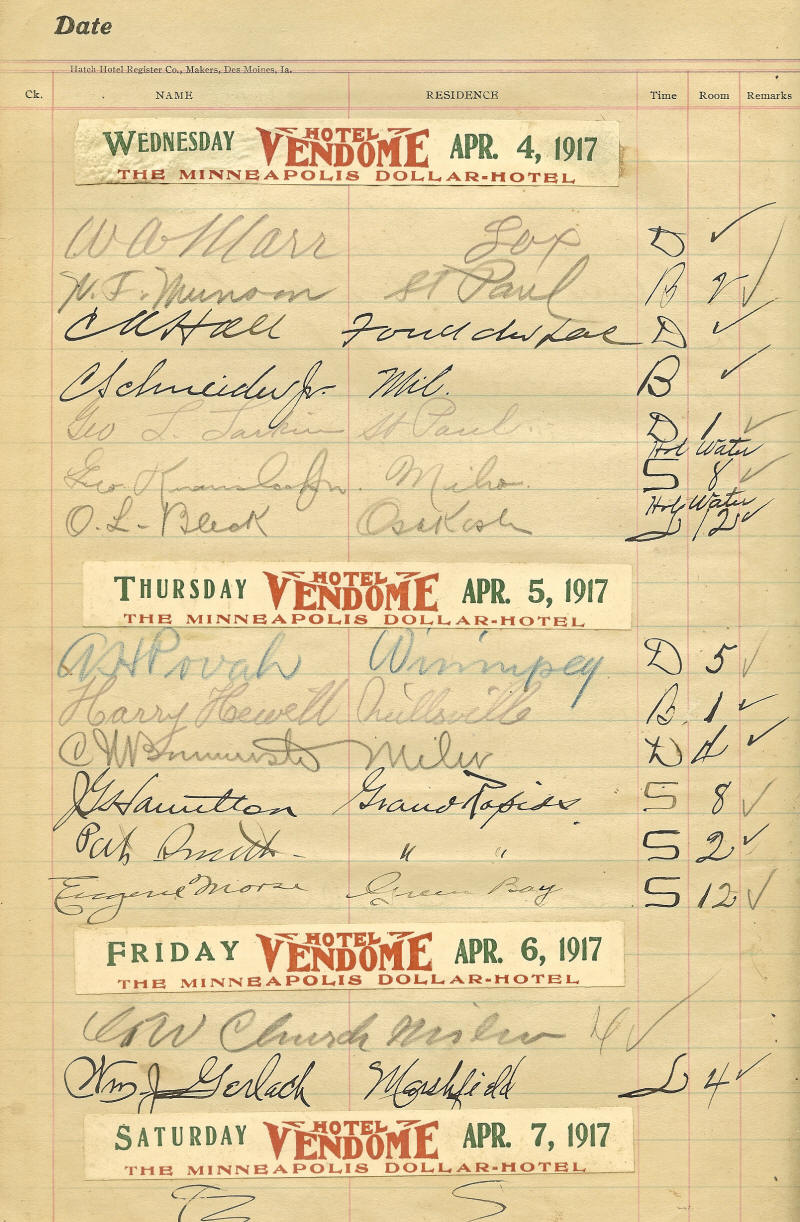 Date
Hatch Hotel Register Co., Makers, Des Moines, Ia.
Ck. NAME RESIDENCE Time Room Remarks
WEDNESDAY HOTEL VENDOME APR. 4, 1917
THE MINNEAPOLIS DOLLAR-HOTEL
W A Marr Lox D ✓
N. F. Munson St Paul B 2 ✓
C M Hall Fond du Lac D ✓
C Schneider Jr. Mil. B ✓
Geo L. Larkin St Paul D 1 ✓
Hot Water
Geo Milw. S 8 ✓
Hot Water
O. L. Bleck Oskosh L 12 ✓
THURSDAY HOTEL VENDOME APR. 5, 1917
THE MINNEAPOLIS DOLLAR-HOTEL
A H Povah Winnipeg D 5 ✓
Harry Hewett Neillsville B. 1 ✓
C Milw D 4 ✓
J G Hamilton Grand Rapids S 8 ✓
Pat Smith " " S 2 ✓
Eugene Morse Green Bay S 12 ✓
FRIDAY HOTEL VENDOME APR. 6, 1917
THE MINNEAPOLIS DOLLAR-HOTEL
W Church Milw ✓
Wm. J. Gerlach Marshfield L 4 ✓
SATURDAY HOTEL VENDOME APR. 7, 1917
THE MINNEAPOLIS DOLLAR-HOTEL